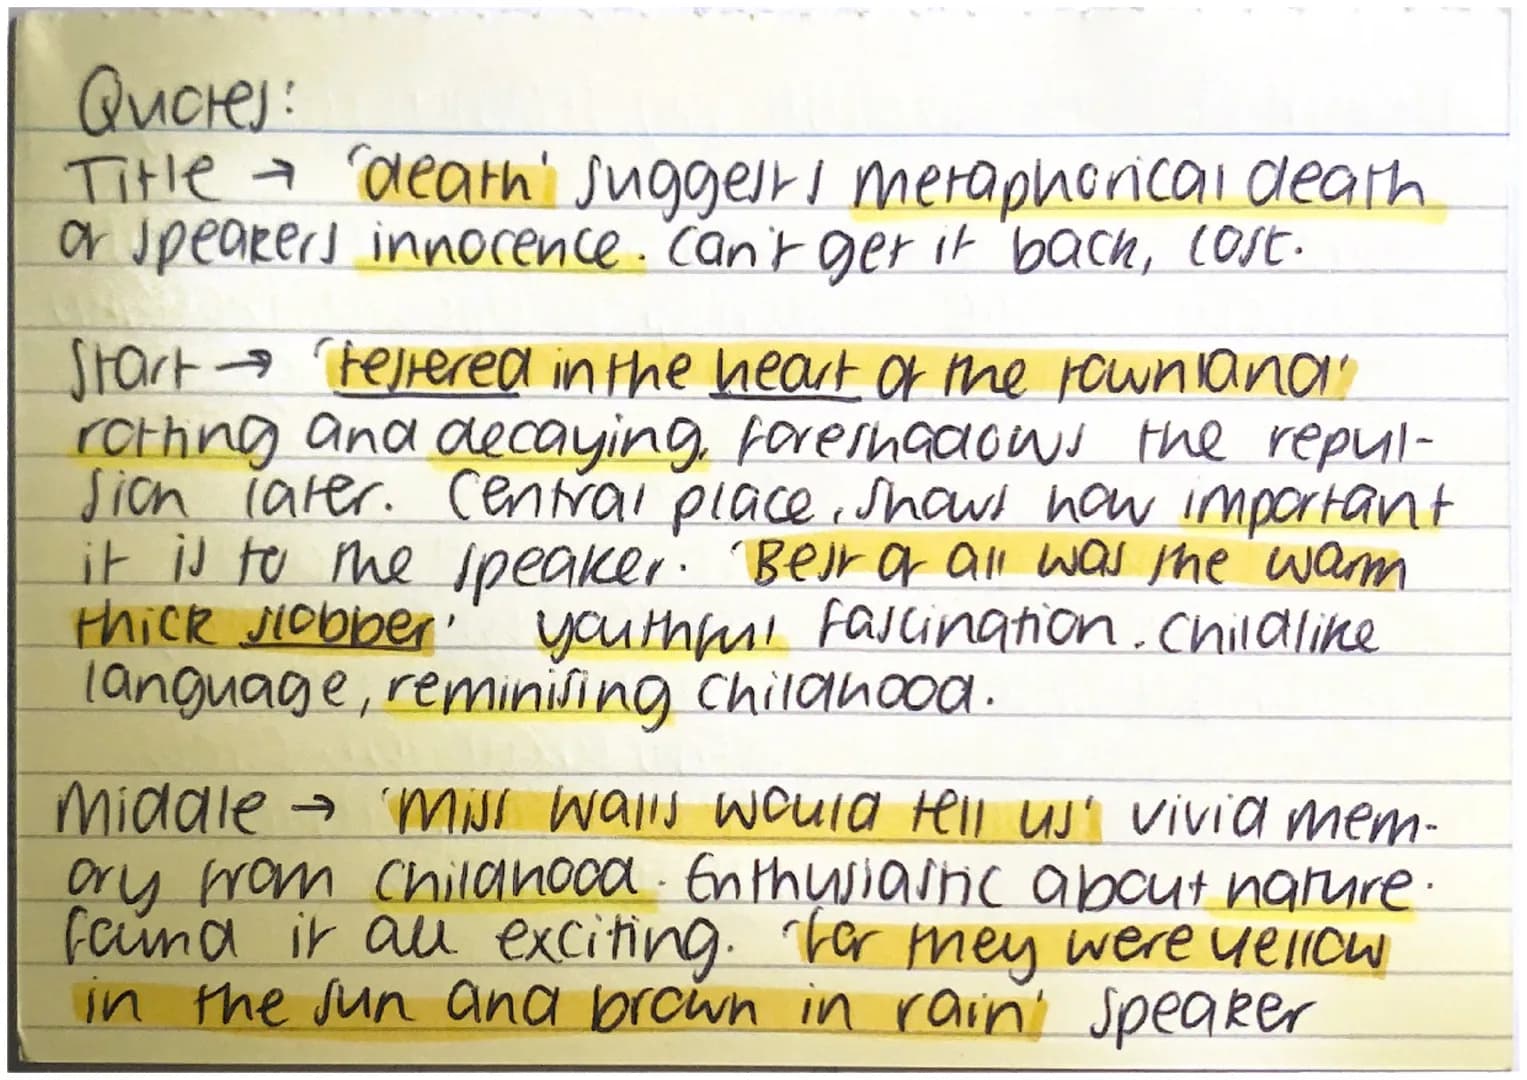 Quotes:
Title → 'death' suggests metaphorical death
of speakers innocence. Can't get it back, lost.
Start → 'festered in the heart of the townland'
rotting and decaying, foreshadows the repul-
sion later. Central place, shows how important
it is to the speaker. 'Best of all was the warm
thick slobber' youthful fascination. Childlike
language, reminising childhood.
Middle → 'Miss Walls would tell us' vivid mem-
ory from childhood. Enthusiastic about nature.
found it all exciting. 'for they were yellow
in the sun and brown in rain' speaker